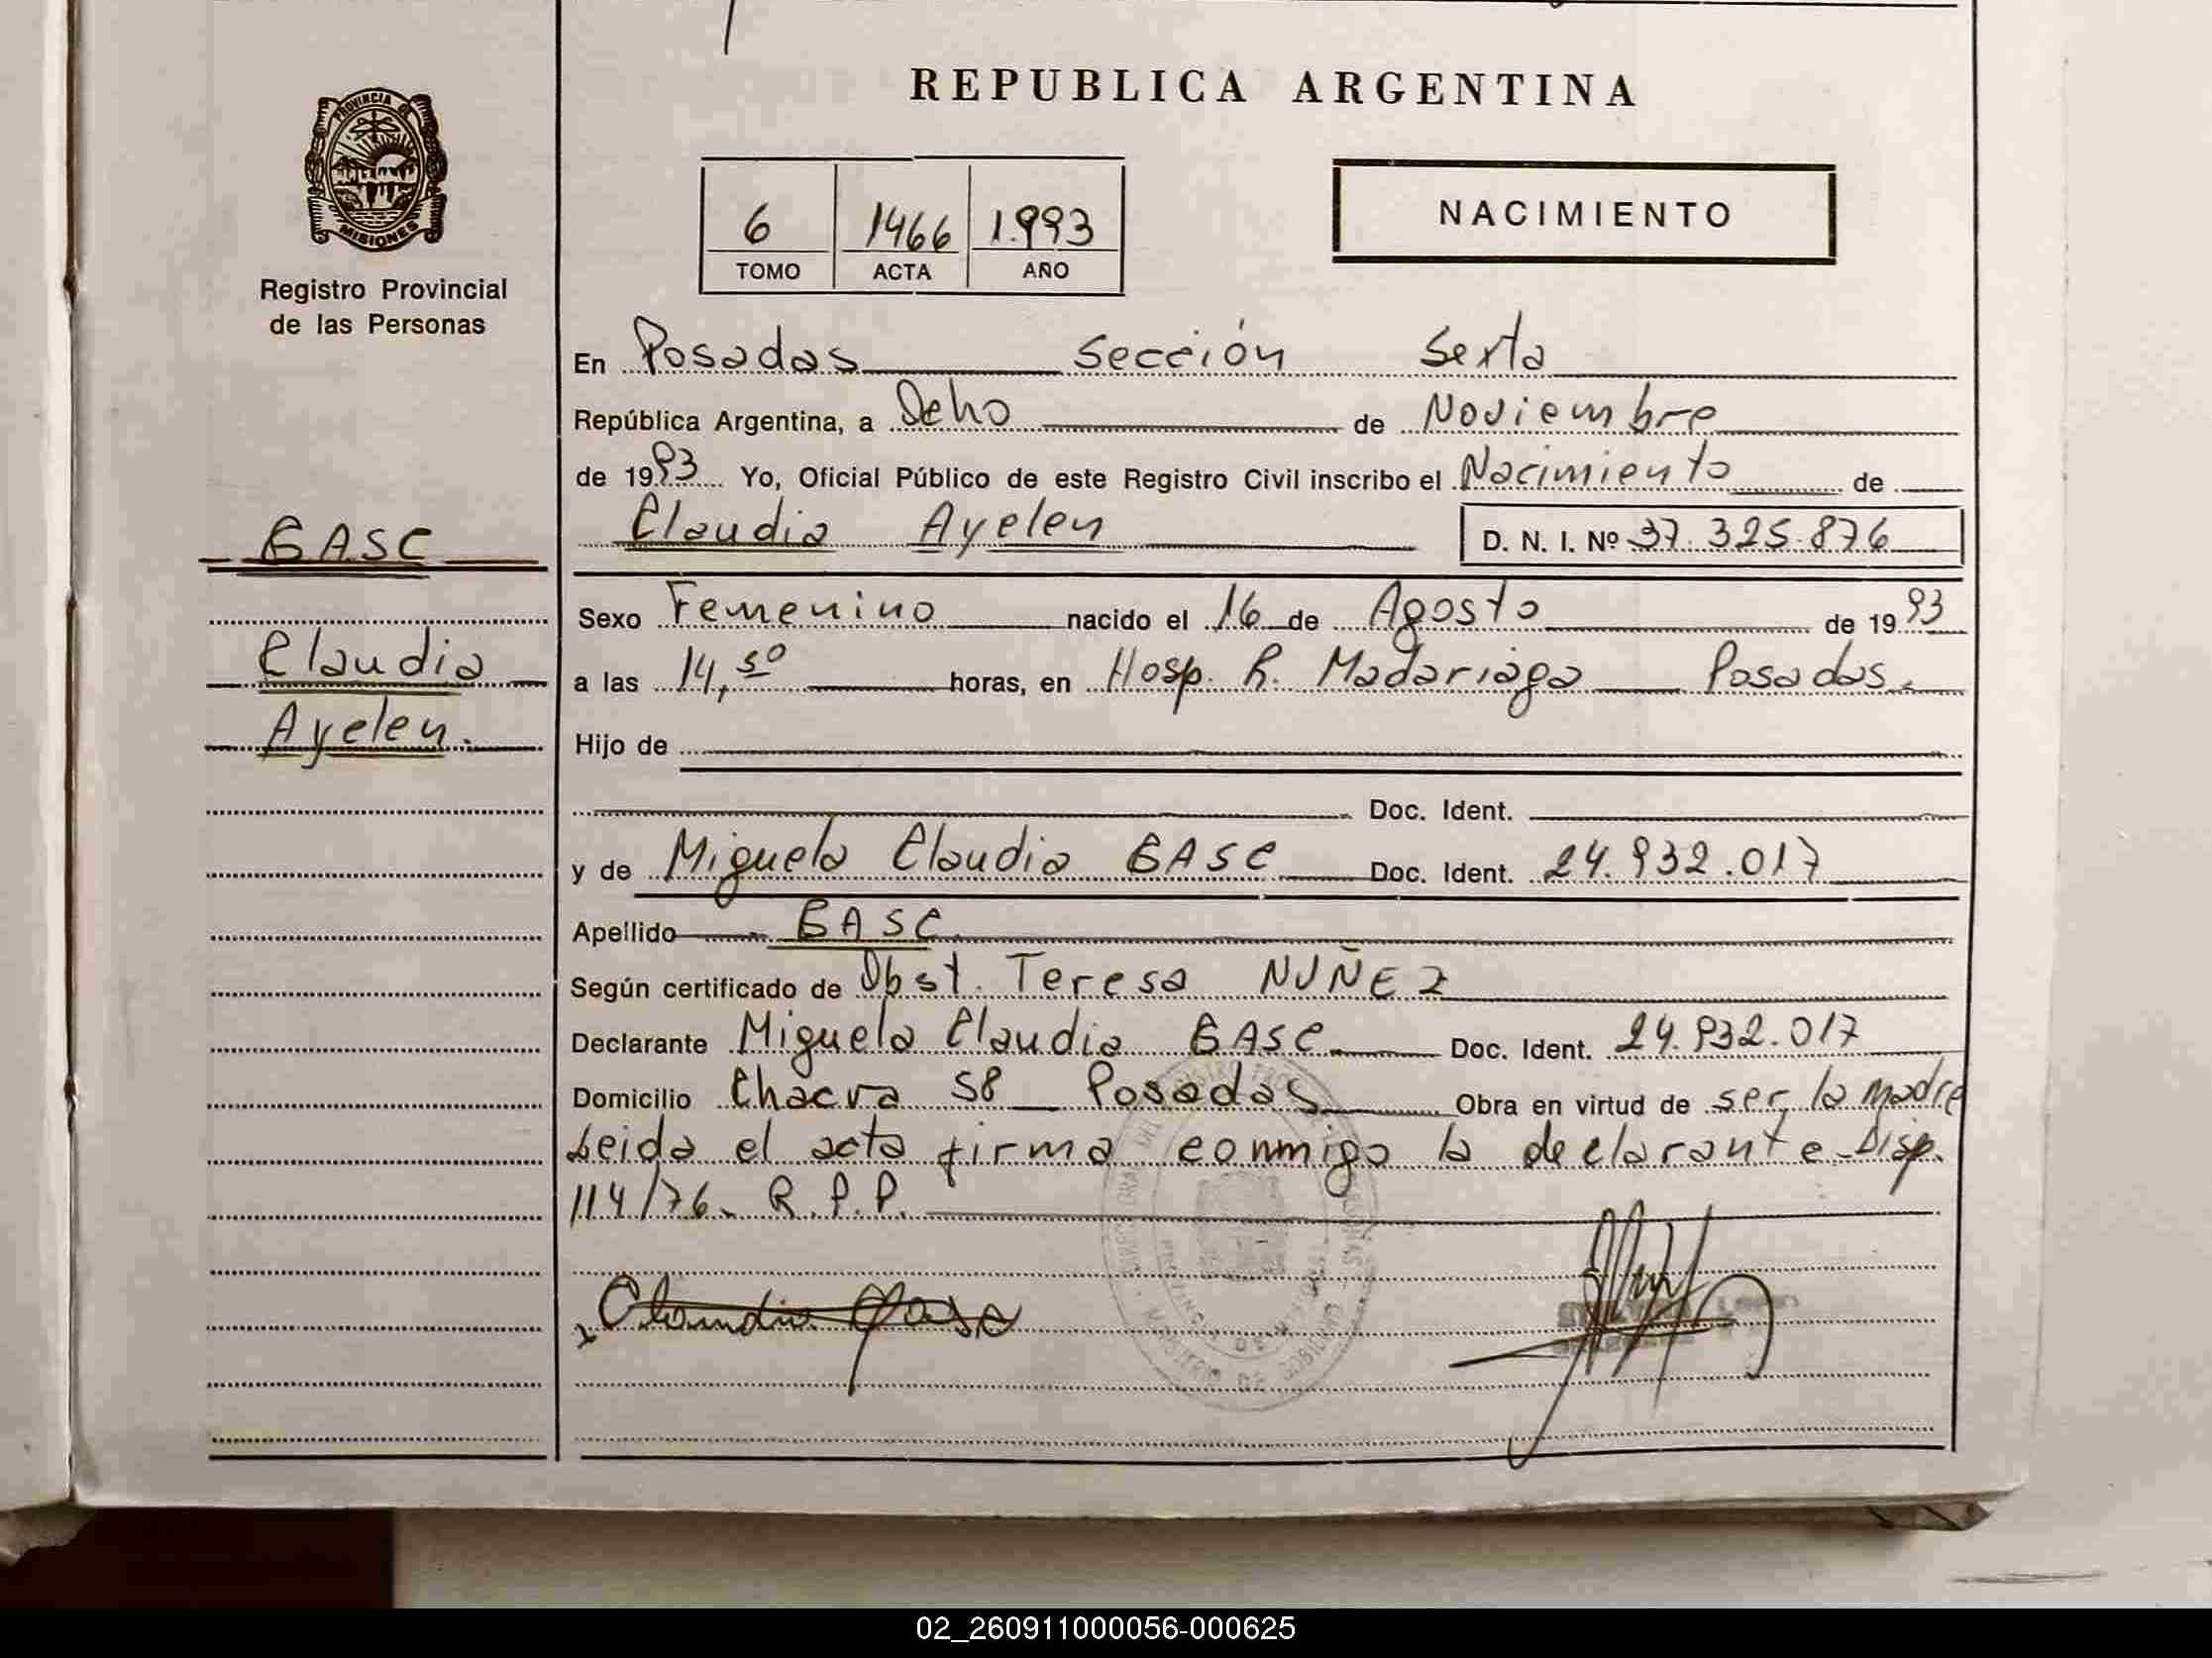 REPUBLICA ARGENTINA
PROVINCIA DE
MISIONES
Registro Provincial
de las Personas
6 1466 1.993
TOMO ACTA AÑO
NACIMIENTO
En Posadas Sección Sexta
República Argentina, a Ocho de Noviembre
de 1993 Yo, Oficial Público de este Registro Civil inscribo el Nacimiento de
GASC
Claudia Ayelen D. N. I. Nº 37.325.876
Sexo Femenino nacido el 16 de Agosto de 1993
Claudia
a las 14,50 horas, en Hosp. R. Madariaga Posadas.
Ayelen.
Hijo de
Doc. Ident.
y de Miguela Claudia GASC Doc. Ident. 24.932.017
Apellido GASC
Según certificado de Obst. Teresa NUÑEZ
Declarante Miguela Claudia GASC Doc. Ident. 24.932.017
Domicilio Chacra 58 Posadas Obra en virtud de ser la madre
Leida el acta firma conmigo la declarante-Disp.
114/76. R.P.P.
Claudia Gasc
02_260911000056-000625